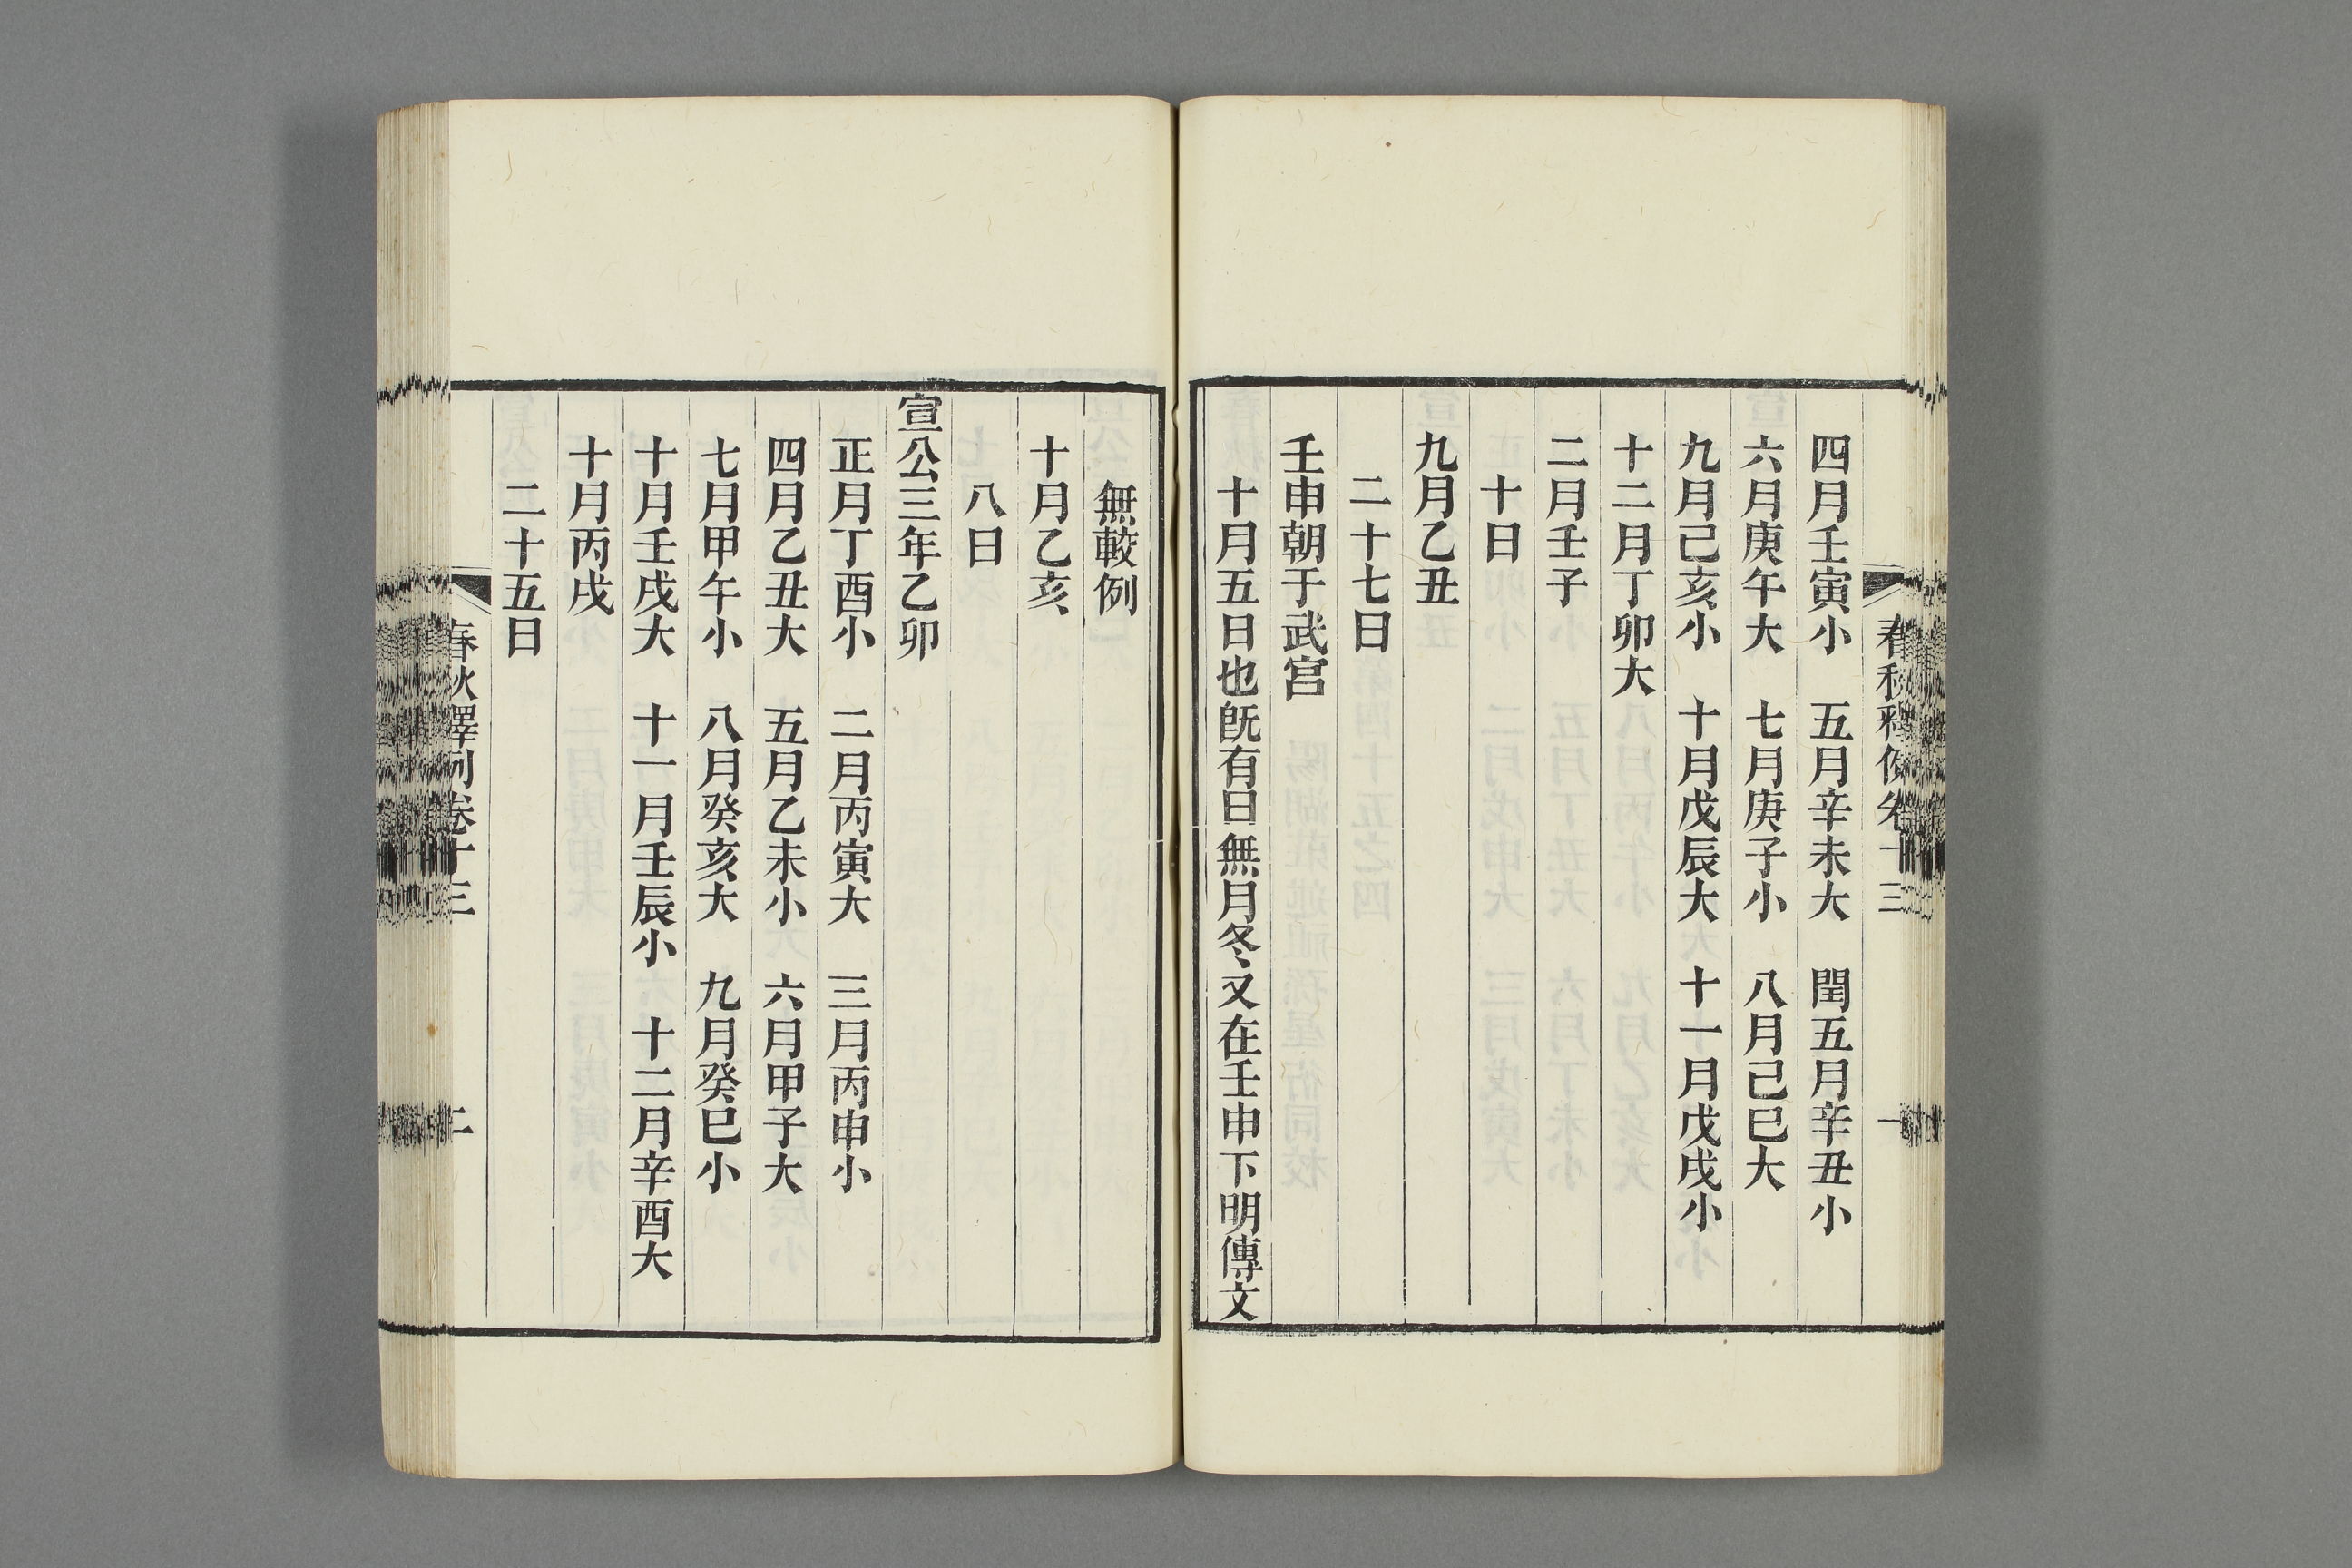 春秋釋例卷十三 一
四月壬寅小 五月辛未大 閏五月辛丑小
六月庚午大 七月庚子小 八月己巳大
九月己亥小 十月戊辰大 十一月戊戌小
十二月丁卯大
二月壬子
十日
九月乙丑
二十七日
壬申朝于武宮
十月五日也旣有日無月冬又在壬申下明傳文
無較例
十月乙亥
八日
宣公三年乙卯
正月丁酉小 二月丙寅大 三月丙申小
四月乙丑大 五月乙未小 六月甲子大
七月甲午小 八月癸亥大 九月癸巳小
十月壬戌大 十一月壬辰小 十二月辛酉大
十月丙戌
二十五日
春秋釋例卷十三 二